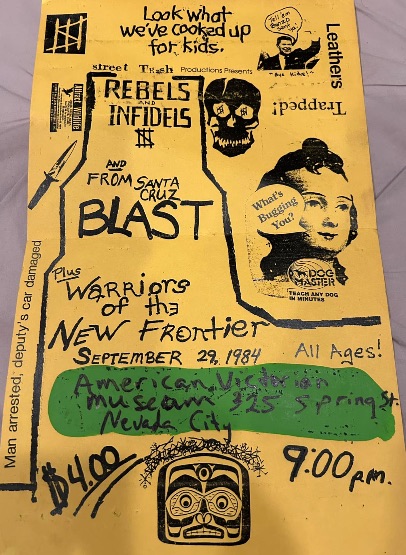 Look what
we've cooked up
for kids.
Street Trash Productions Presents
REBELS
AND
INFIDELS
AND
FROM SANTA
CRUZ
BLAST
Plus
Warriors
of the
New Frontier
September 29, 1984
All Ages!
American Victorian
museum 325 Spring St.
Nevada City
$4.00
9:00 p.m.
Leathers
Trapped!
What's
Bugging
You?
DOG
MASTER
TEACH ANY DOG
IN MINUTES
Man arrested, deputy's car damaged